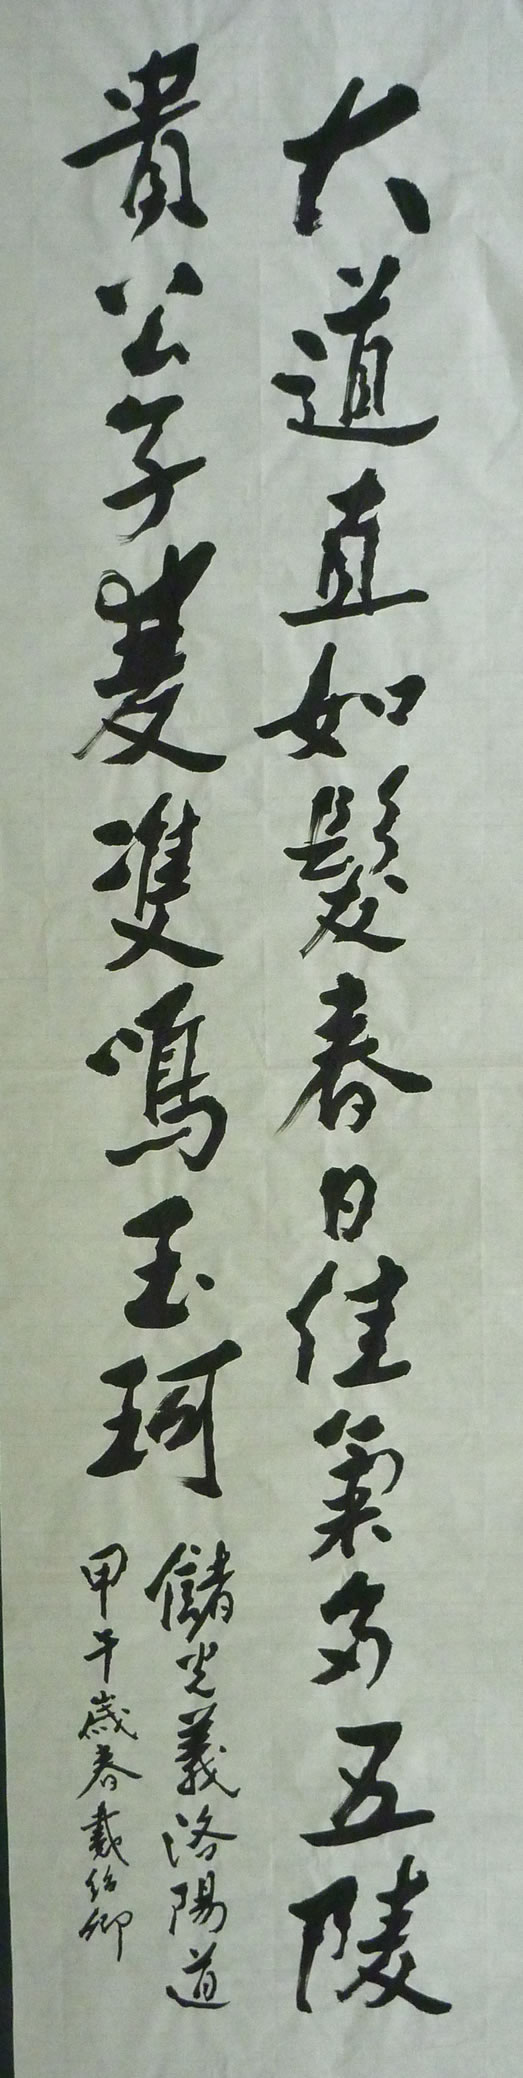 大道直如髮春日佳氣多五陵
貴公子雙雙鳴玉珂
儲光羲洛陽道
甲午歲春戴紹卿